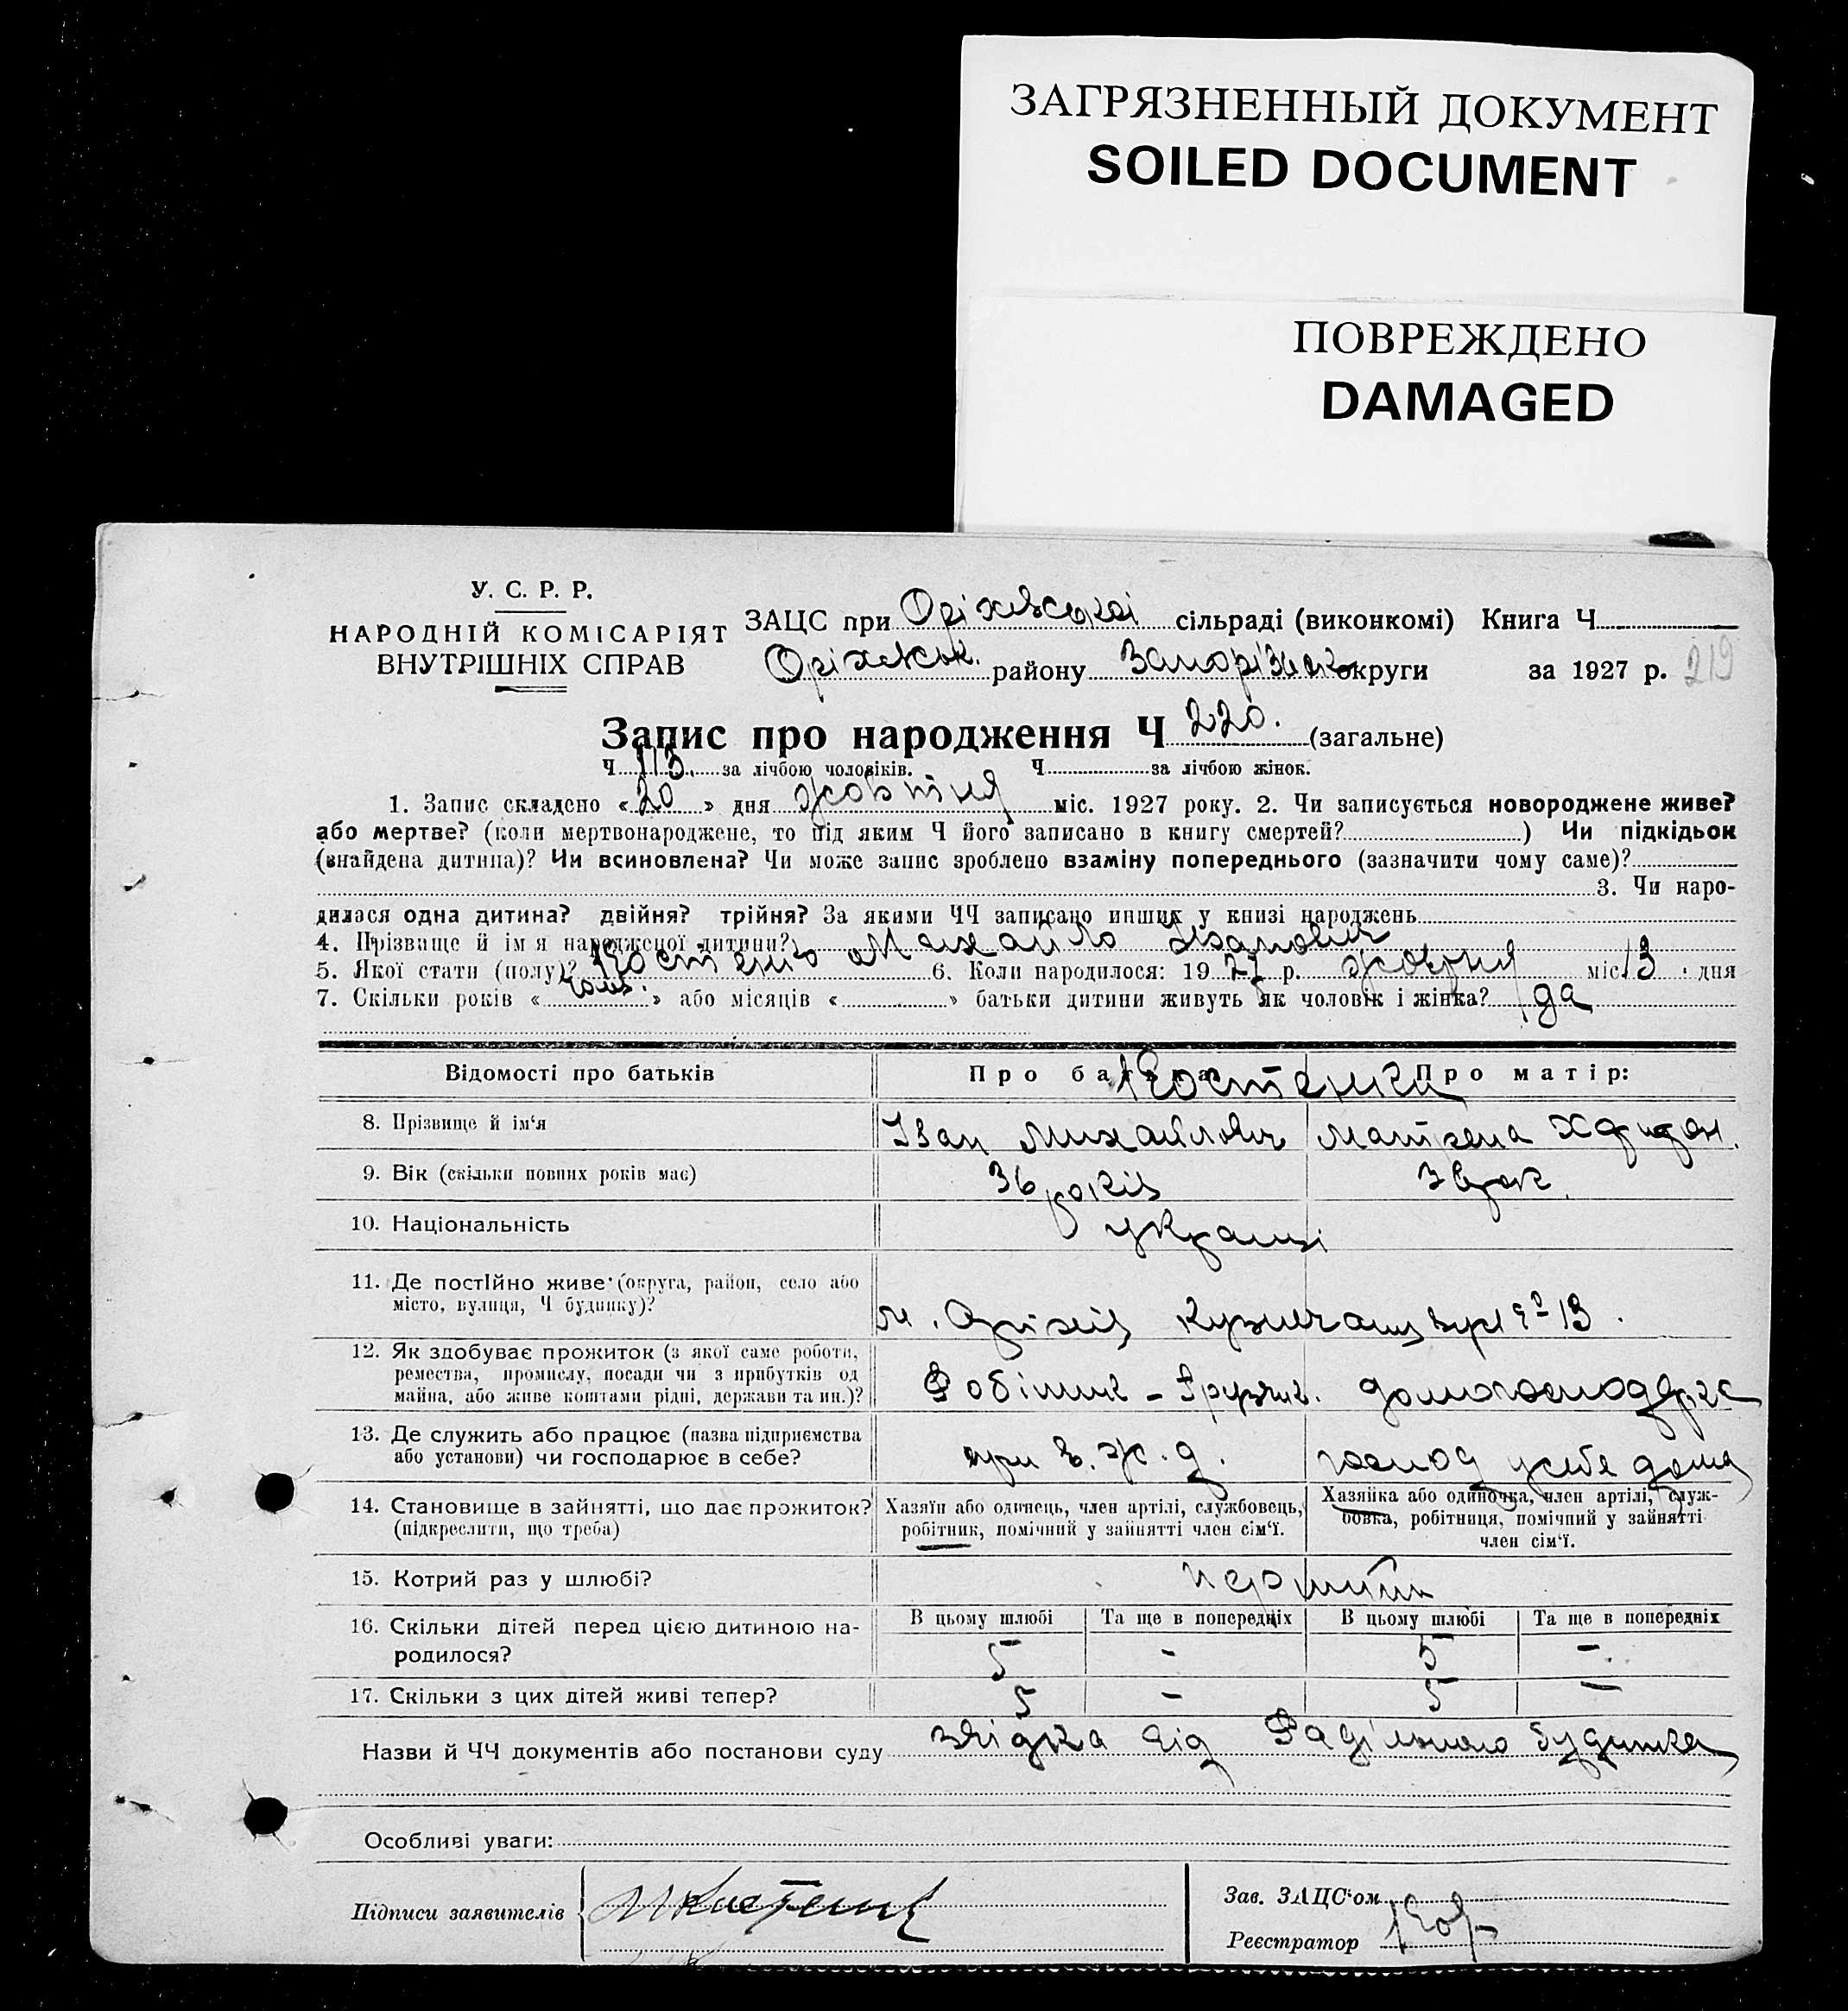 ЗАГРЯЗНЕННЫЙ ДОКУМЕНТ
SOILED DOCUMENT
ПОВРЕЖДЕНО
DAMAGED
У. С. Р. Р.
НАРОДНІЙ КОМІСАРІЯТ
ВНУТРІШНІХ СПРАВ
ЗАЦС при Оріхівській сільраді (виконкомі) Книга Ч
Оріхівськ. району Запорізьк округи за 1927 р. 219
Запис про народження Ч 220. (загальне)
Ч 113. за лічбою чоловіків. Ч за лічбою жінок.
1. Запис складено « 20 » дня жовтня міс. 1927 року. 2. Чи записується новороджене живе?
або мертве? (коли мертвонароджене, то під яким Ч його записано в книгу смертей? ) Чи підкідьок
(знайдена дитина)? Чи всиновлена? Чи може запис зроблено взаміну попереднього (зазначити чому саме)?
3. Чи наро-
дилася одна дитина? двійня? трійня? За якими ЧЧ записано инших у книзі народжень
4. Прізвище й ім я народженої дитини? Костенко Михайло Іванович
5. Якої стати (полу)? чолов. 6. Коли народилося: 19 27 р. жовтня міс. 13 дня
7. Скільки років « » або місяців « » батьки дитини живуть як чоловік і жінка? да
Відомості про батьків Про батька: Про матір:
Костенки
8. Прізвище й ім'я Іван Михайлович Матрена Харитон.
9. Вік (скільки повних років має) 36 років 36 рок.
10. Національність українці
11. Де постійно живе (округа, район, село або
місто, вулиця, Ч будинку)? м. Оріхів вул 13.
12. Як здобуває прожиток (з якої саме роботи,
ремества, промислу, посади чи з прибутків од
майна, або живе коштами рідні, держави та ин.)? Робітник - грузчик. домогосподарка
13. Де служить або працює (назва підприємства
або установи) чи господарює в себе? при ж. д. господ у себе дома
14. Становище в зайнятті, що дає прожиток?
(підкреслити, що треба)
Хазяїн або одинець, член артілі, службовець,
робітник, помічний у зайнятті член сім'ї.
Хазяйка або одиночка, член артілі, служ-
бовка, робітниця, помічний у зайнятті
член сім'ї.
15. Котрий раз у шлюбі? перший
16. Скільки дітей перед цією дитиною на-
родилося?
В цьому шлюбі Та ще в попередніх В цьому шлюбі Та ще в попередніх
5 - 5 -.
17. Скільки з цих дітей живі тепер? 5 - 5 -
Назви й ЧЧ документів або постанови суду звідка від Радільного будинка
Особливі уваги:
Підписи заявителів
Зав. ЗАЦС'ом
Реєстратор